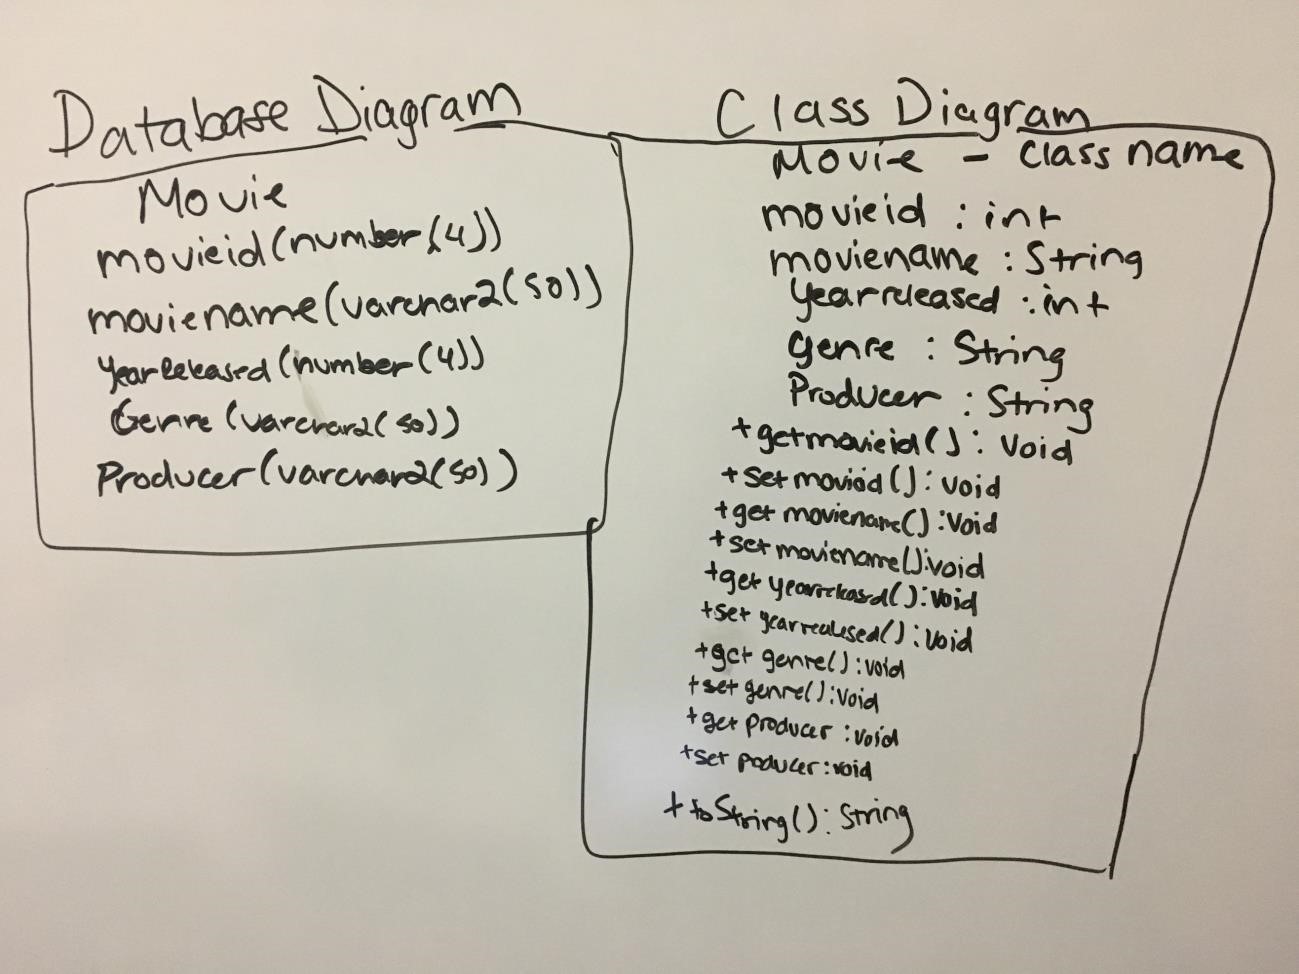 Database Diagram
Movie
movieid(number(4))
moviename(varchar2(50))
yearReleased(number(4))
Genre(varchar2(50))
Producer(varchar2(50))
Class Diagram
Movie - class name
movieid : int
moviename : String
yearreleased : int
genre : String
Producer : String
+getmovieid() : Void
+set moviid() : void
+get moviename() : Void
+set moviename() : void
+get yearreleased() : Void
+set yearrealesed() : Void
+get genre() : void
+set genre() : Void
+get producer : void
+set poducer : void
+toString() : String